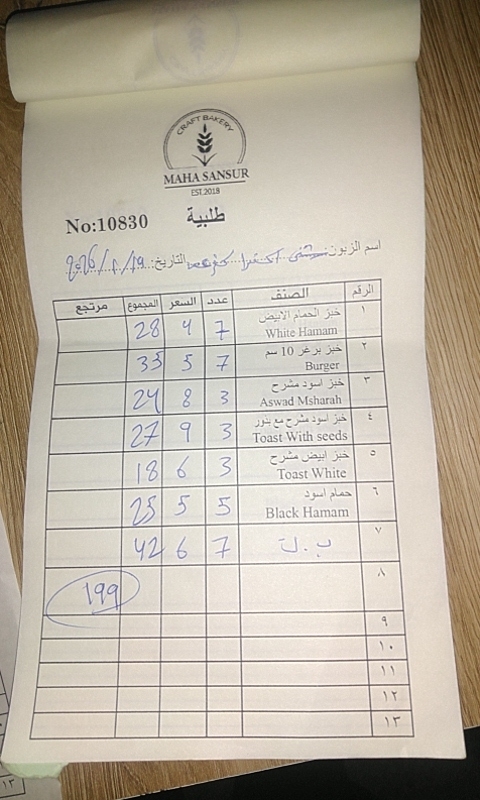 CRAFT BAKERY
MAHA SANSUR
EST.2018
No:10830 طلبية
اسم الزبون: التاريخ:
الرقم الصنف عدد السعر المجموع مرتجع
١ خبز الحمام الابيض White Hamam 7 4 28
٢ خبز برغر 10 سم Burger 7 5 35
٣ خبز اسود مشرح Aswad Msharah 3 8 24
٤ خبز اسود مشرح مع بذور Toast With seeds 3 9 27
٥ خبز ابيض مشرح Toast White 3 6 18
٦ حمام اسود Black Hamam 5 5 25
٧ 7 6 42
٨ 199
٩
١٠
١١
١٢
١٣